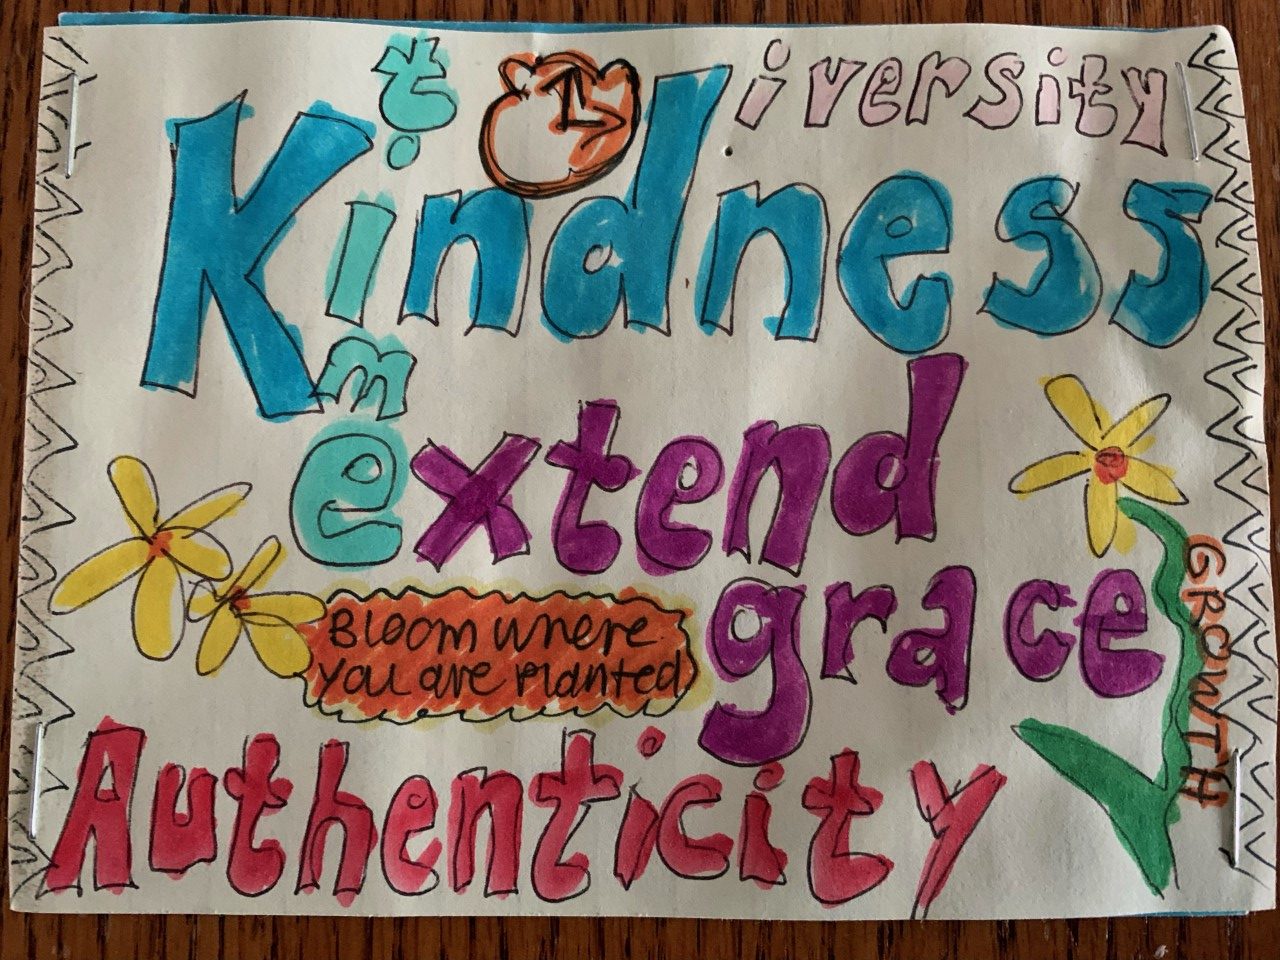 time
diversity
Kindness
extend
grace
Bloom where
you are planted
GROWTH
Authenticity